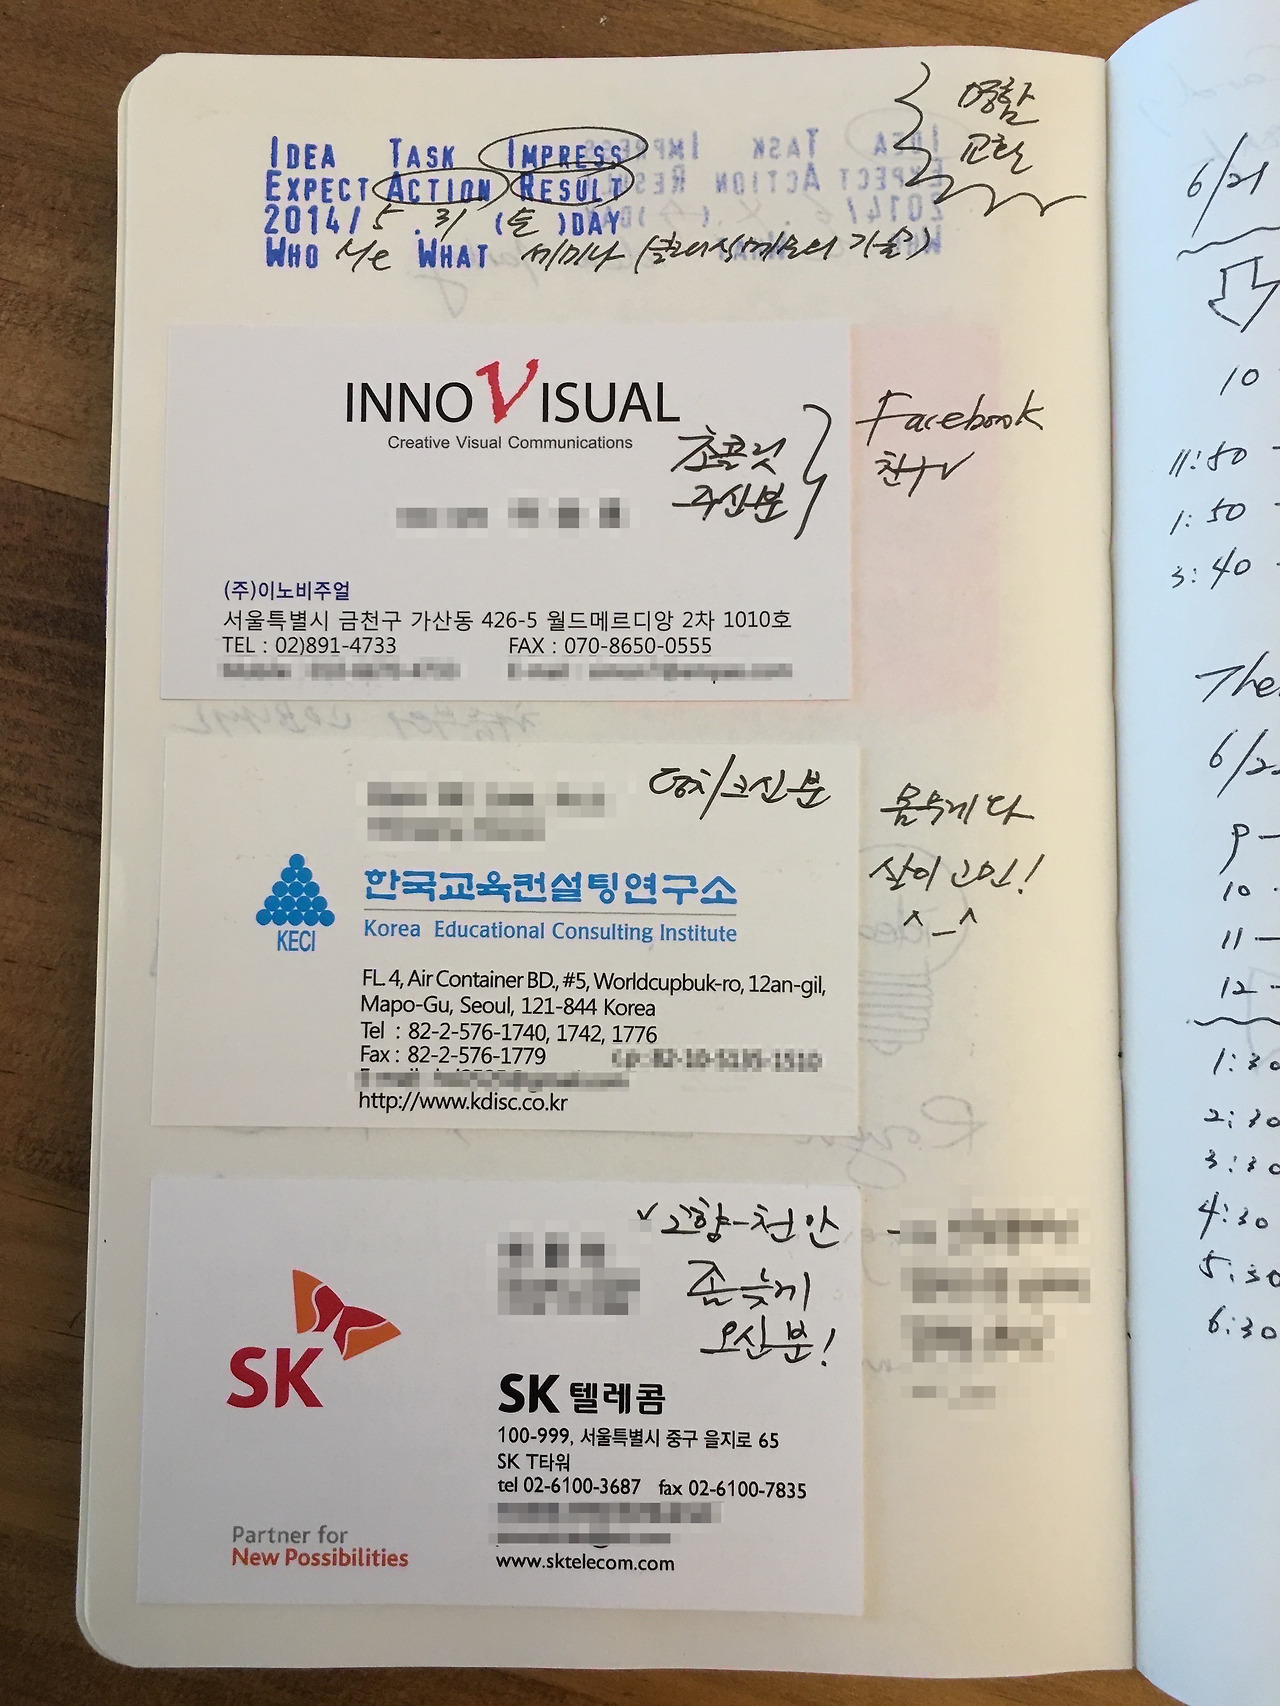 명함
교환
IDEA TASK IMPRESS
EXPECT ACTION RESULT
2014/ 5 . 31 (토)DAY
WHO Me WHAT 세미나 (클래식메모의 기술)
INNOVISUAL
Creative Visual Communications
초콜릿
주신분
Facebook
친구
(주)이노비주얼
서울특별시 금천구 가산동 426-5 월드메르디앙 2차 1010호
TEL : 02)891-4733 FAX : 070-8650-0555
몸무게 다
살이 고민!
^_^
한국교육컨설팅연구소
KECI
Korea Educational Consulting Institute
FL. 4, Air Container BD., #5, Worldcupbuk-ro, 12an-gil,
Mapo-Gu, Seoul, 121-844 Korea
Tel : 82-2-576-1740, 1742, 1776
Fax : 82-2-576-1779
http://www.kdisc.co.kr
고향-천안
좀 늦게
오신분!
SK
SK 텔레콤
100-999, 서울특별시 중구 을지로 65
SK T타워
tel 02-6100-3687 fax 02-6100-7835
Partner for
New Possibilities
www.sktelecom.com
6/21
10
11:50
1:50
3:40
6/22
9
10
11
12
1:30
2:30
3:30
4:30
5:30
6:30